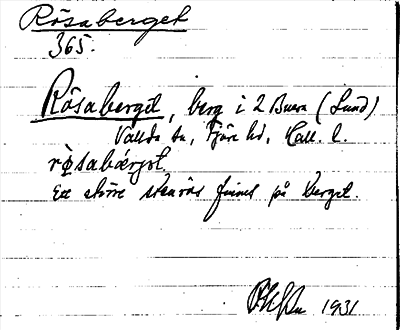 Rösaberget
365.
Rösaberget, berg i 2 Buera (Sund)
Vallda sn, Fjäre hd, Hall. l.
røsabærgət.
Ett större stenrös finns på berget.
1931